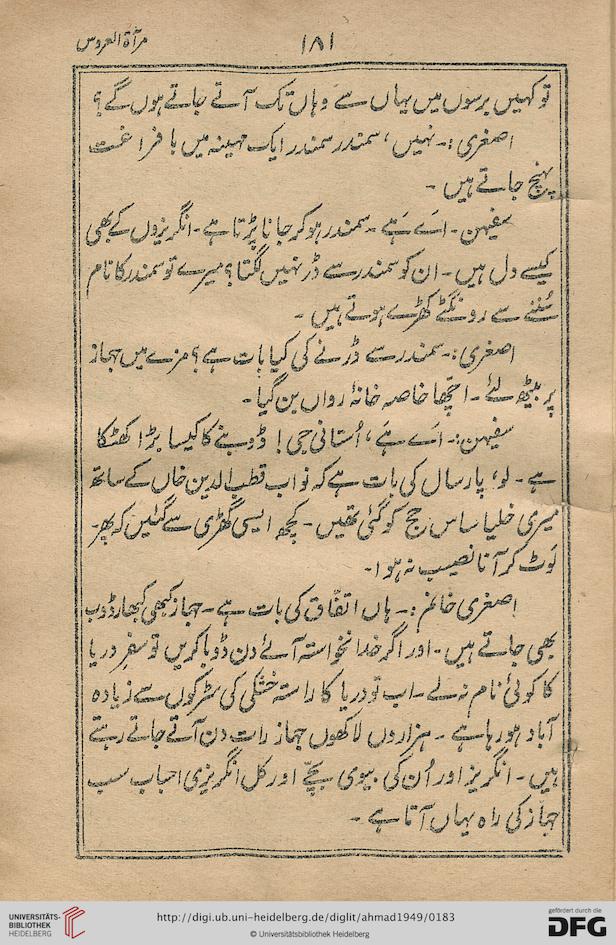 مرآۃ العروس
۱۸۱
تو کہیں برسوں میں یہاں سے وہاں تک آتے جاتے ہوں گے؟
اصغری:۔ نہیں، سمندر سمندر ایک مہینہ میں با فراغت
پہنچ جاتے ہیں ۔
سفیہن ۔ اَے ہَے ۔ سمندر ہو کر جانا پڑتا ہے ۔ انگریزوں کے بھی
کیسے دل ہیں ۔ ان کو سمندر سے ڈر نہیں لگتا؟ میرے تو سمندر کا نام
سُننے سے رونگٹے کھڑے ہوتے ہیں ۔
اصغری:۔ سمندر سے ڈرنے کی کیا بات ہے؟ مزے میں جہاز
پر بیٹھ لئے ۔ اچّھا خاصہ خانۂ رواں بن گیا ۔
سفیہن:۔ اَے ہَے، اُستانی جی! ڈوبنے کا کیسا بڑا کھٹکا
ہے ۔ لو، پارسال کی بات ہے کہ نواب قطب الدین خاں کے ساتھ
میری خلیا ساس حج کو گئی تھیں ۔ کچھ ایسی گھڑی سے گئیں کہ پھر
لَوٹ کر آنا نصیب نہ ہوا ۔
اصغری خانم:۔ ہاں اتفّاق کی بات ہے ۔ جہاز کبھی کبھار ڈوب
بھی جاتے ہیں ۔ اور اگر خدانخواستہ آئے دن ڈوبا کریں تو سفرِ دریا
کا کوئی نام نہ لے ۔ اب تو دریا کا راستہ خشکی کی سڑکوں سے زیادہ
آباد ہو رہا ہے ۔ ہزاروں لاکھوں جہاز رات دن آتے جاتے رہتے
ہیں ۔ انگریز اور اُن کی بیوی بچّے اور کل انگریزی اسباب سب
جہاز کی راہ یہاں آتا ہے ۔
UNIVERSITÄTS-
BIBLIOTHEK
HEIDELBERG
http://digi.ub.uni-heidelberg.de/diglit/ahmad1949/0183
© Universitätsbibliothek Heidelberg
gefördert durch die
DFG